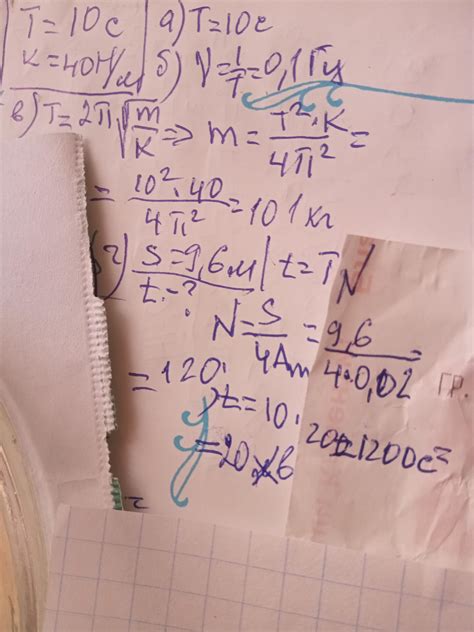 T = 10 с
K = 40 Н/м
а) T = 10 с
б) ν = 1/T = 0,1 Гц
в) T = 2π √(m/K) => m = T²·K / 4π² =
= 10²·40 / 4π² = 101 кг
г) S = 9,6 м | t = T N
t - ?
N = S / 4Am = 9,6 / 4·0,02 =
= 120.
t = 10.
120 = 1200 с =
= 20
гр.